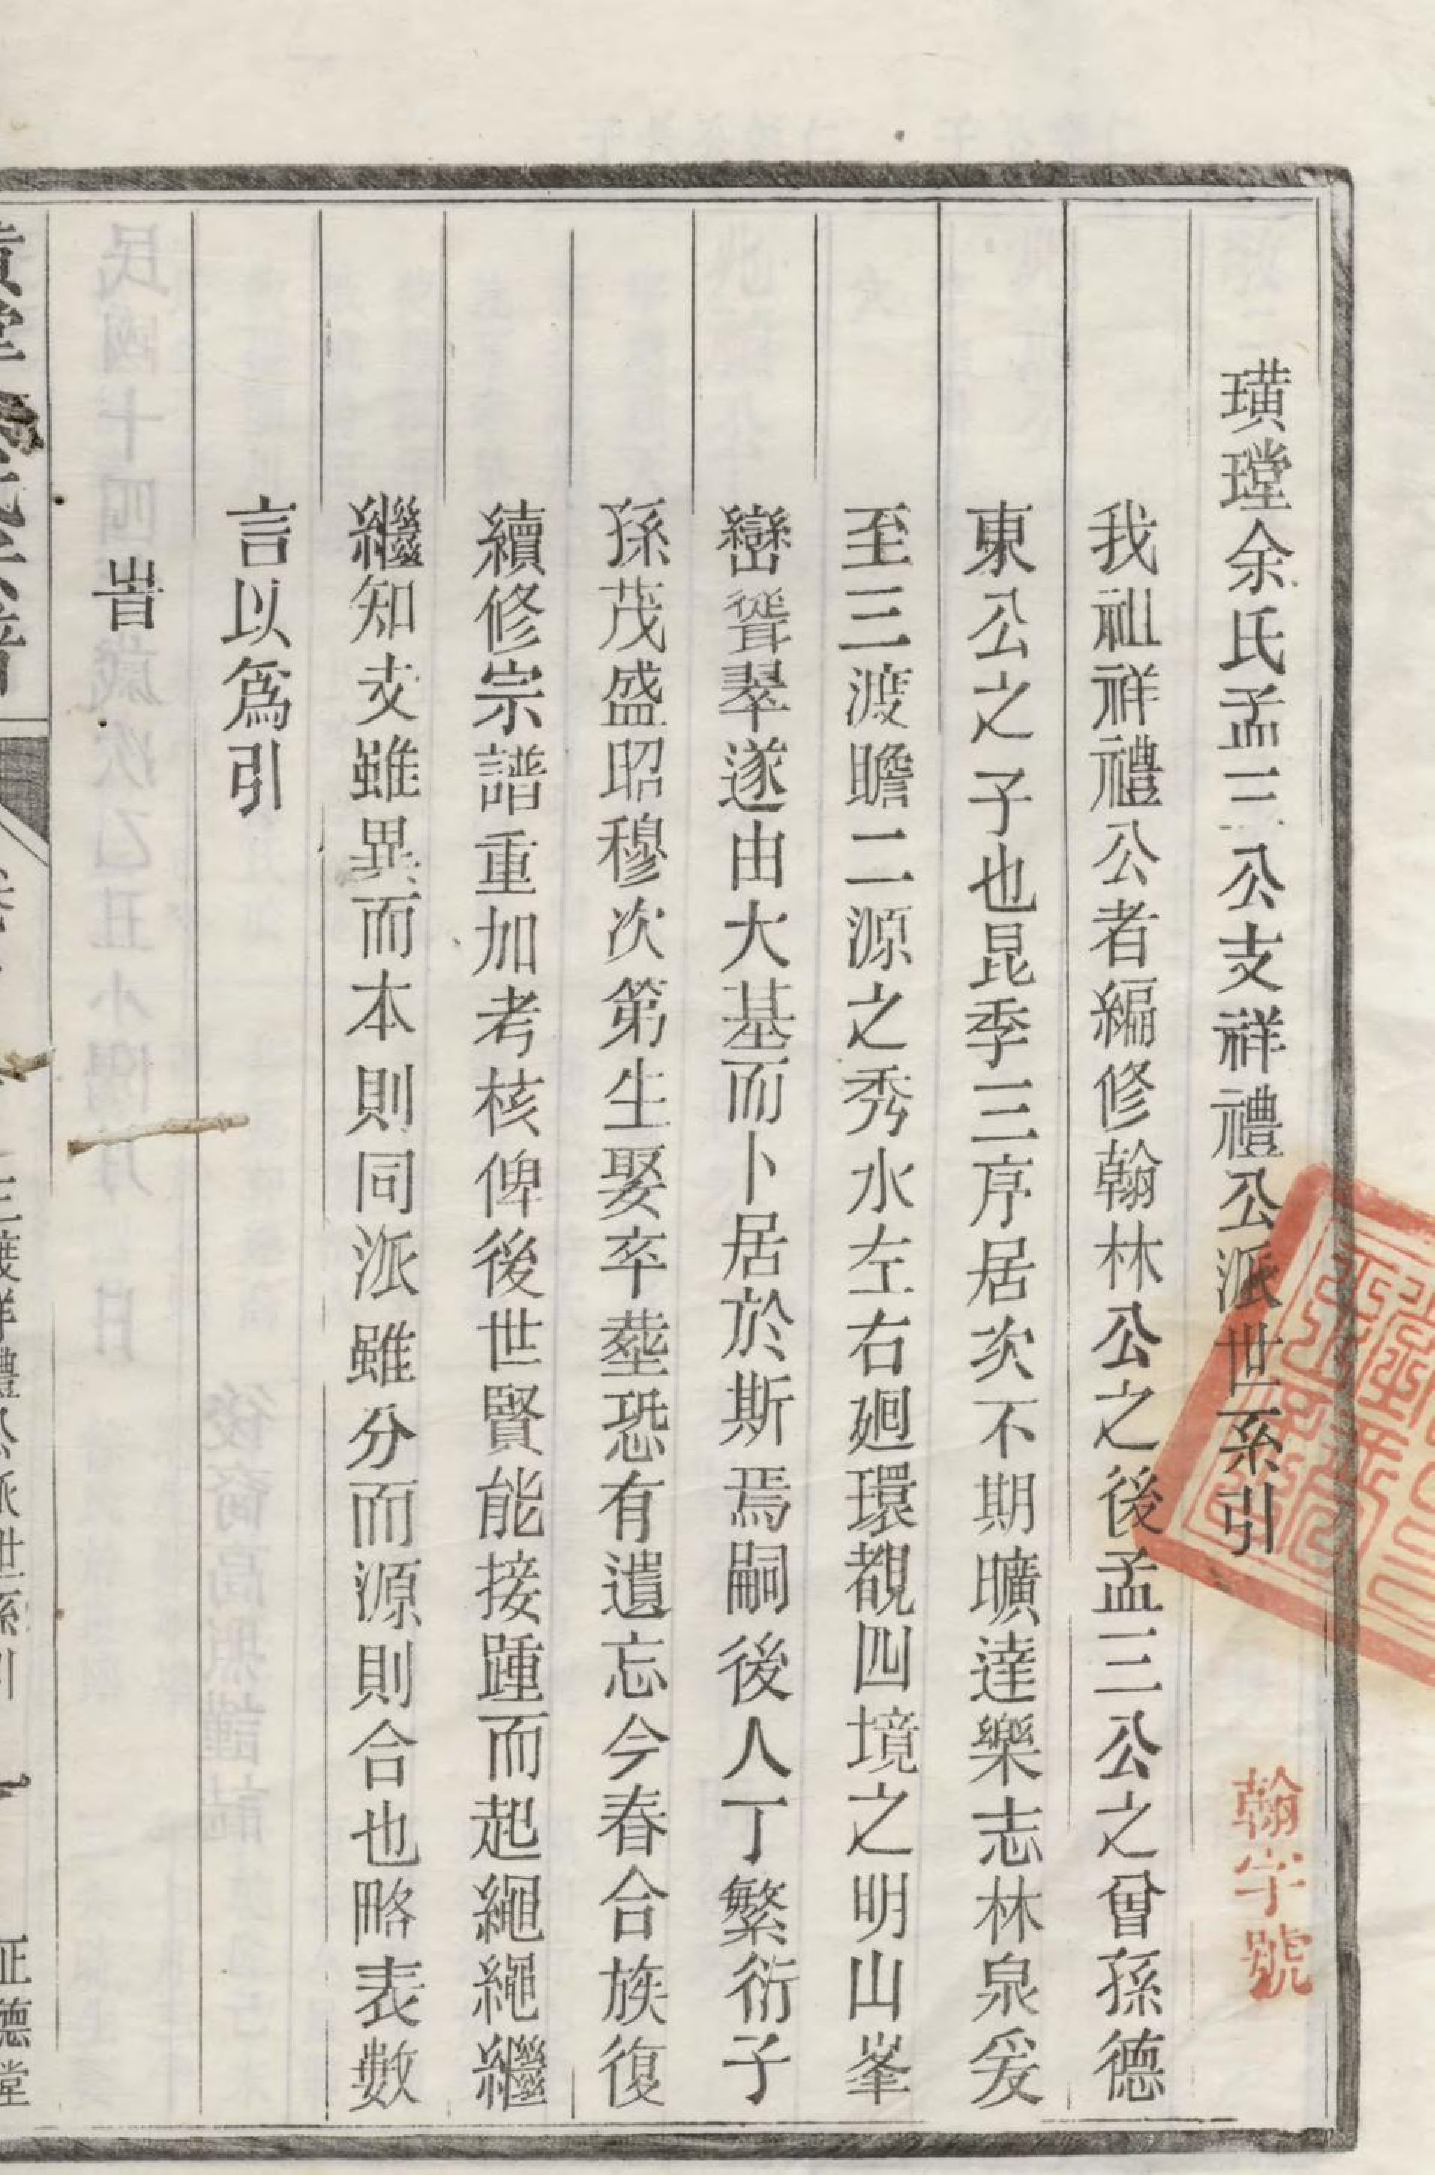 璜瑝余氏孟三公支祥禮公派世系引
翰字號
我祖祥禮公者編修翰林公之後孟三公之曾孫德
東公之子也昆季三序居次不期曠達樂志林泉爰
至三渡瞻二源之秀水左右廻環覩四境之明山峯
巒聳翠遂由大基而卜居於斯焉嗣後人丁繁衍子
孫茂盛昭穆次第生娶卒塟恐有遺忘今春合族復
續修宗譜重加考核俾後世賢能接踵而起繩繩繼
繼知支雖異而本則同派雖分而源則合也略表數
言以爲引
旹
三渡祥禮公派世系引
正德堂